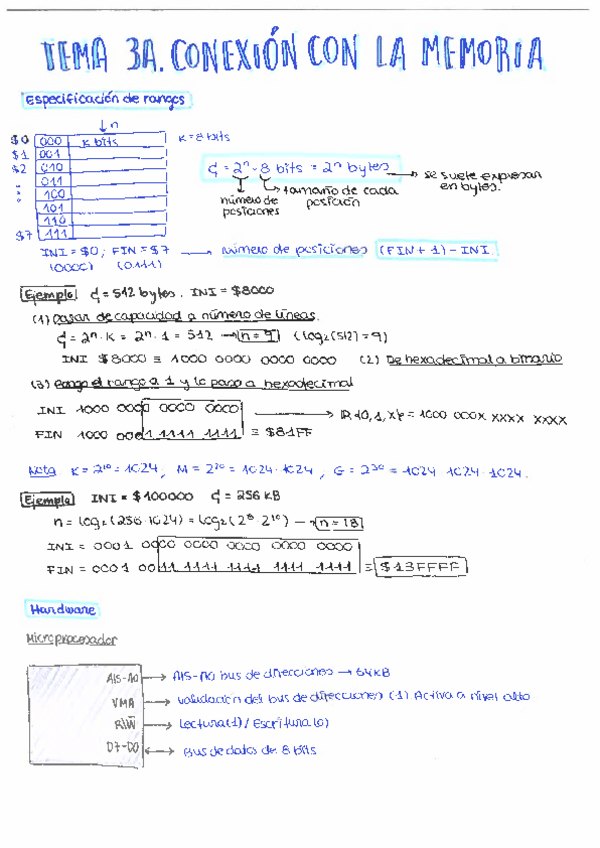 TEMA 3A. CONEXIÓN CON LA MEMORIA
Especificación de rangos
↓n
$0 000 K bits K = 8 bits
$1 001
$2 010
011
100
101
110
$7 111
C = 2ⁿ · 8 bits = 2ⁿ bytes → se suele expresar en bytes.
número de posiciones
tamaño de cada posición
INI = $0; FIN = $7 → número de posiciones (FIN + 1) - INI
(0000) (0111)
Ejemplo C = 512 bytes. INI = $8000
(1) Pasar de capacidad a número de líneas.
C = 2ⁿ · K = 2ⁿ · 1 = 512 → n = 9 (log₂(512) = 9)
INI $8000 ≡ 1000 0000 0000 0000 (2) De hexadecimal a binario
(3) Pongo el rango a 1 y lo paso a hexadecimal
INI 1000 0000 0000 0000 → R{0,1,X} = 1000 000X XXXX XXXX
FIN 1000 0001 1111 1111 ≡ $81FF
Nota K = 2¹⁰ = 1024, M = 2²⁰ = 1024 · 1024, G = 2³⁰ = 1024 · 1024 · 1024.
Ejemplo INI = $100000 C = 256 KB
n = log₂(256 · 1024) = log₂(2⁸ · 2¹⁰) → n = 18
INI = 0001 0000 0000 0000 0000 0000
FIN = 0001 0011 1111 1111 1111 1111 ≡ $13FFFF
Hardware
Microprocesador
A15-A0 → A15-A0 bus de direcciones → 64KB
VMA → Validación del bus de direcciones (1) Activa a nivel alto
R/W̅ → Lectura(1) / Escritura(0)
D7-D0 ↔ Bus de datos de 8 bits